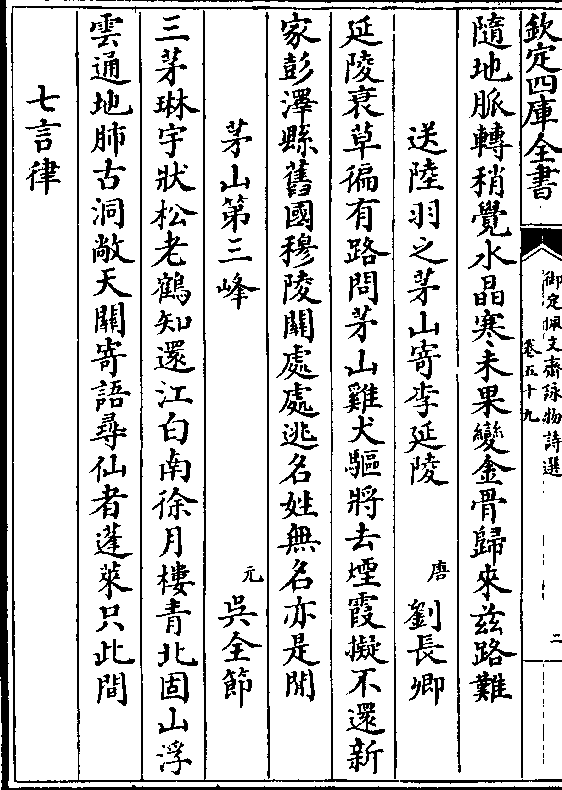 欽定四庫全書
御定佩文齋詠物詩選
卷五十九
二
隨地脈轉稍覺水晶寒未果變金骨歸來兹路難
送陸羽之茅山寄李延陵
唐
劉長卿
延陵衰草徧有路問茅山雞犬驅將去煙霞擬不還新
家彭澤縣舊國穆陵關處處逃名姓無名亦是閒
茅山第三峰
元
吳全節
三茅琳宇狀松老鶴知還江白南徐月樓青北固山浮
雲通地肺古洞敞天關寄語尋仙者蓬萊只此間
七言律